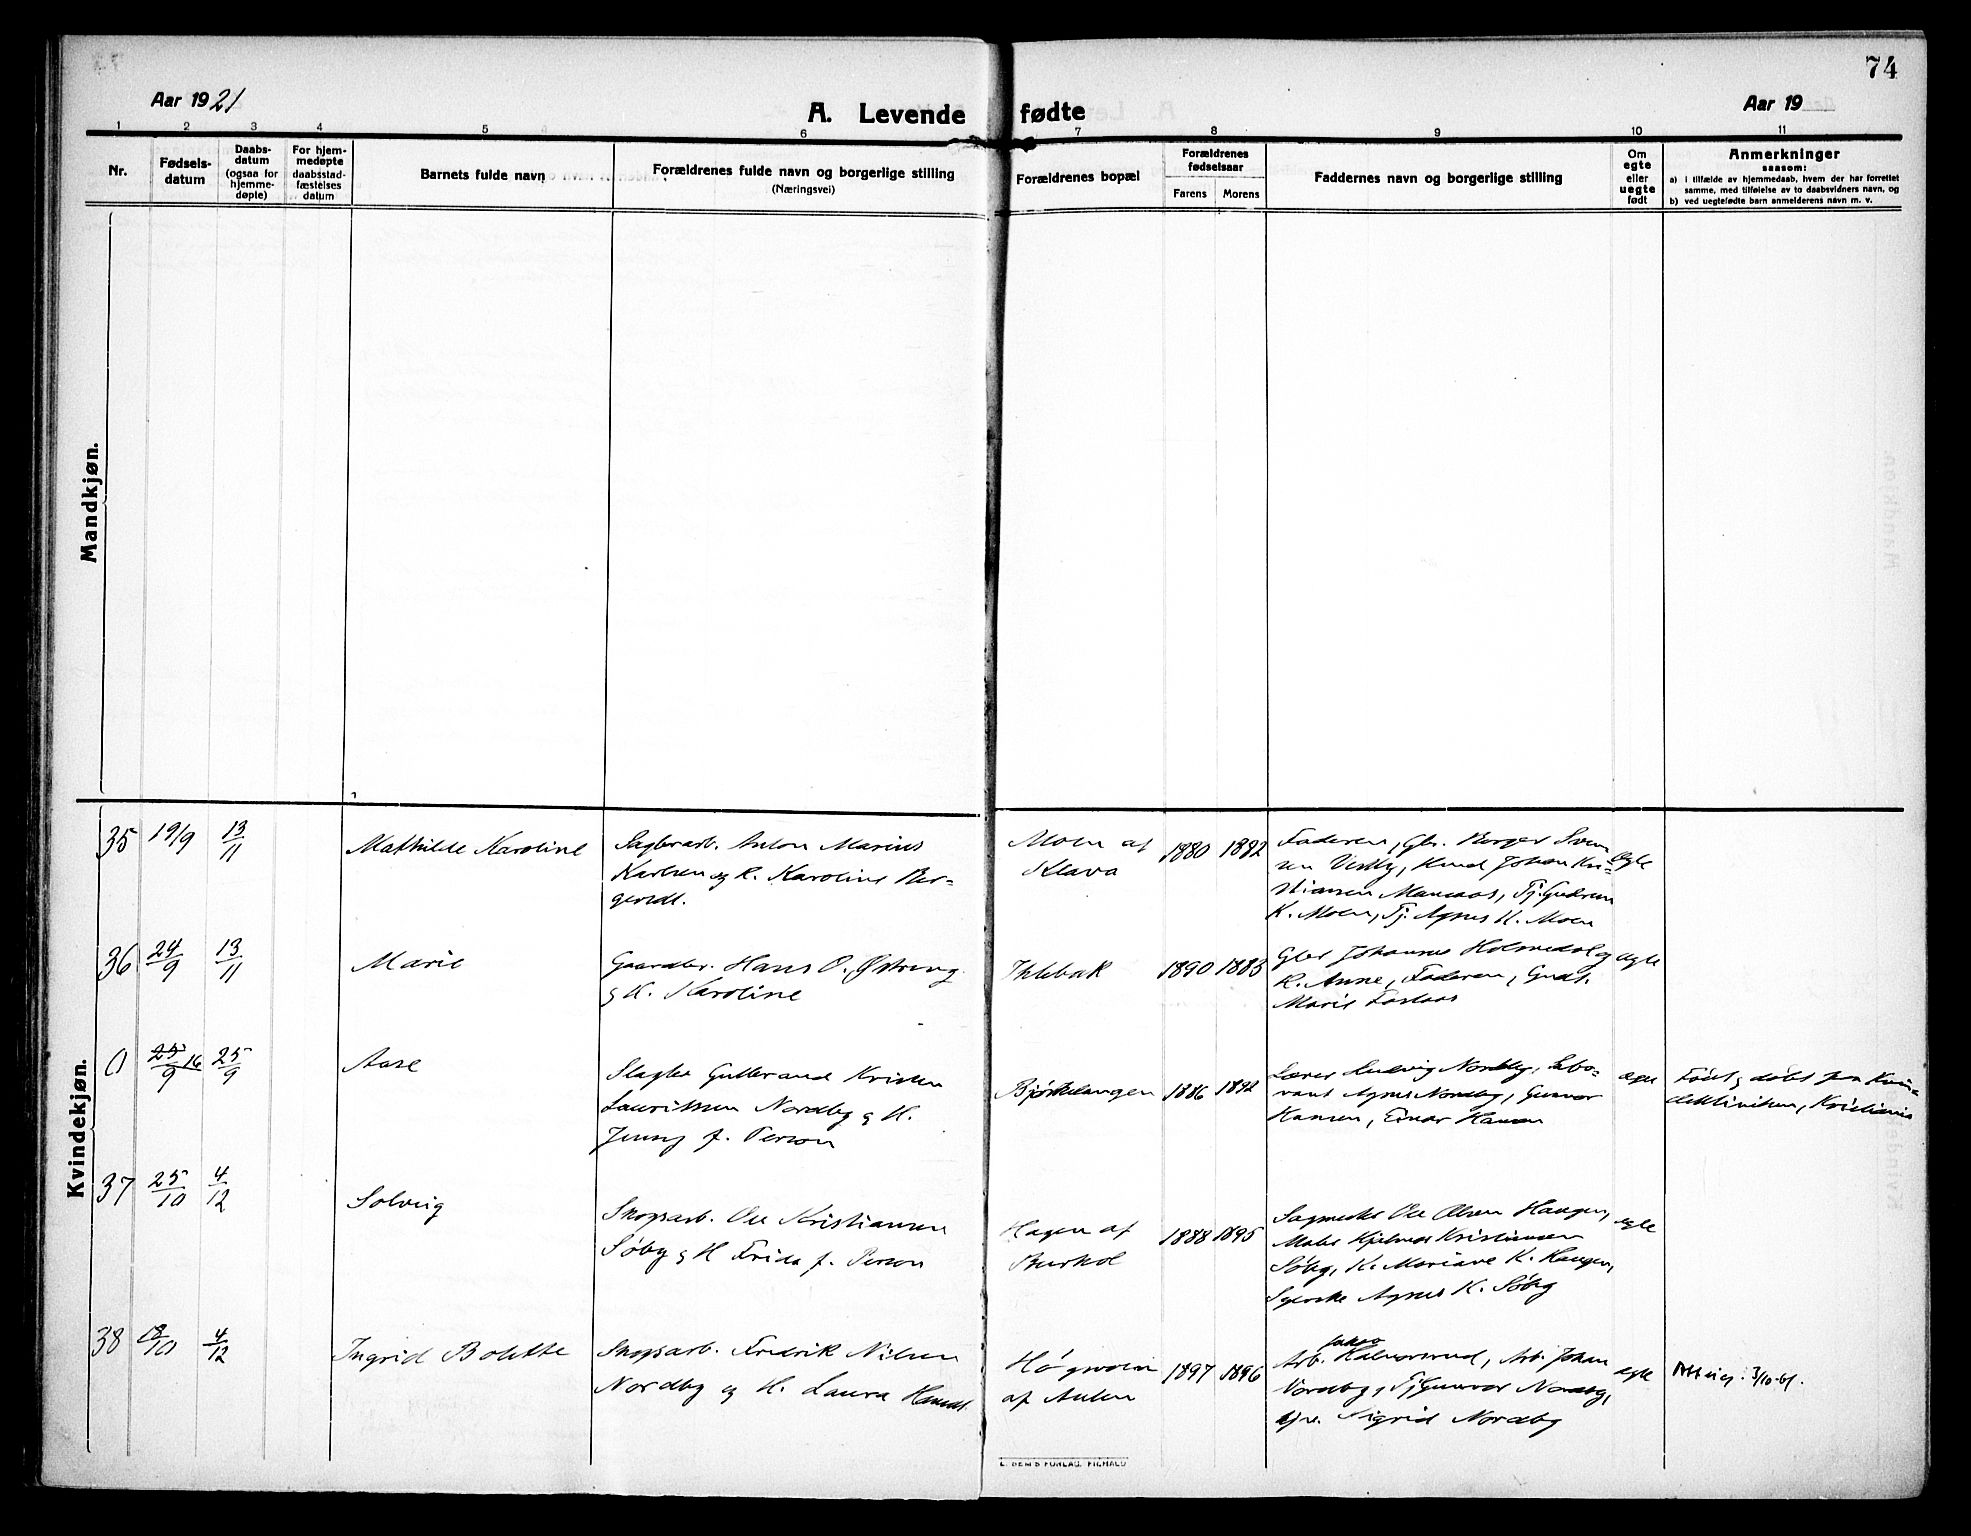 74
Aar 1921
A. Levende fødte
Aar 19
1 2 3 4 5 6 7 8 9 10 11
Nr.
Fødsels-
datum
Daabs-
datum
(ogsaa for
hjemme-
døpte)
For hjem-
medøpte
daabsstad-
fæstelses
datum
Barnets fulde navn
Forældrenes fulde navn og borgerlige stilling
(Næringsvei)
Forældrenes bopæl
Forældrenes
fødselsaar
Farens Morens
Faddernes navn og borgerlige stilling
Om
egte
eller
uegte
født
Anmerkninger
saasom:
a) i tilfælde av hjemmedaab, hvem der har forrettet
samme, med tilføielse av to daabsvidners navn, og
b) ved uegtefødte barn anmelderens navn m. v.
Mandkjøn.
Kvindekjøn.
35 19/9 13/11
Mathilde Karoline
Sagbrarb. Anton Marius
Karlsen og K. Karoline Ber-
gersdt.
Moen af
Klava
1880 1882
Faderen, Gbr. Borger Svend-
sen Vestby, Knud Johan Kri-
stiansen Manaas, Pj. Gudrun
K. Moen, Pj. Agnes K. Moen
egte
36 24/9 13/11
Marie
Gaardbr. Hans O. Østreng
og K. Karoline
Ihlebæk
1890 1883
Gbr Johannes Holmedal og
K. Anne, Faderen, Gudt.
Marie Fosaas
egte
0 25/9 16 25/9
Aase
Slagter Gulbrand Kristen
Lauritssen Nordby og H.
Jenny f. Person
Bjørkelangen
1886 1892
Lærer Ludvig Nordby, Labo-
rant Agnes Nordby, Gunvor
Hansen, Einar Hansen
egte
Født og døbt paa Kvin-
deklinikken, Kristiania
37 25/10 4/12
Solveig
Skogsarb. Ole Kristiansen
Søby og H Frida f. Person
Hagen af
Burhol
1888 1895
Sagmester Ole Olsen Haugen,
Maler Hjalmar Kristiansen
Søby, K. Mariane K. Haugen,
Syerske Agnes K. Søby
egte
38 18/10 4/12
Ingrid Bolette
Skogsarb. Fredrik Nilsen
Nordby og H. Laura Hansdt.
Høgmoen
af Aulen
1897 1896
Arb. Halvorsrud, Arb. Johan
Nordby, Pj Gunvor Nordby,
Sigrid Nordby
egte
Attest: 3/10-61.